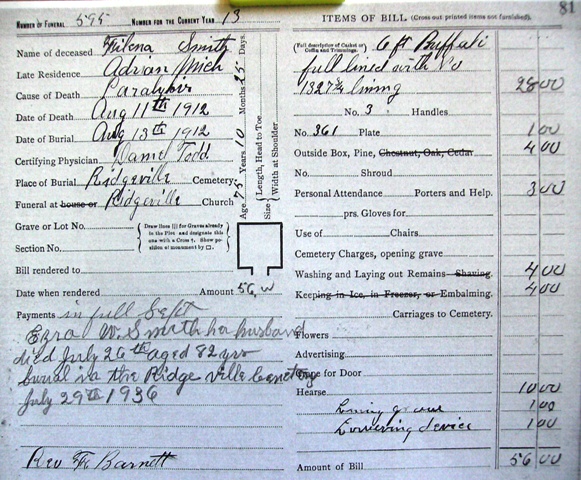 81
NUMBER OF FUNERAL 595 NUMBER FOR THE CURRENT YEAR 13
Name of deceased Smith
Late Residence Adrian Mich
Cause of Death Paralysis
Date of Death Aug 11th 1912
Date of Burial Aug 13th 1912
Certifying Physician Daniel Todd
Place of Burial Ridgeville Cemetery
Funeral at house or Ridgeville Church
Age 75 Years 10 Months 25 Days.
Size { Length, Head to Toe
Width at Shoulder
Grave or Lot No.
Section No.
{ Draw lines (|) for Graves already in the Plot and designate this one with a Cross †. Show position of monument by □. }
Bill rendered to
Date when rendered Amount 56,00
Payments in full Sept
Ezra W. Smith her husband
died July 26th aged 82 yrs
burial in the Ridge ville Cemetery
July 29th 1936
Rev Barnett
ITEMS OF BILL (Cross out printed items not furnished).
(Full description of Casket or Coffin and Trimmings.) 6 ft
full lined with
No. 3 Handles
28 00
No. 361 Plate 1 00
Outside Box, Pine, Chestnut, Oak, Cedar 4 00
No. Shroud
Personal Attendance Porters and Help. 3 00
prs. Gloves for
Use of Chairs.
Cemetery Charges, opening grave
Washing and Laying out Remains Shaving. 4 00
Keeping in Ice, in Freezer, or Embalming. 4 00
Carriages to Cemetery.
Flowers
Advertising
Crape for Door
Hearse 10 00
Lining grave 1 00
Lowering device 1 00
Amount of Bill 56 00